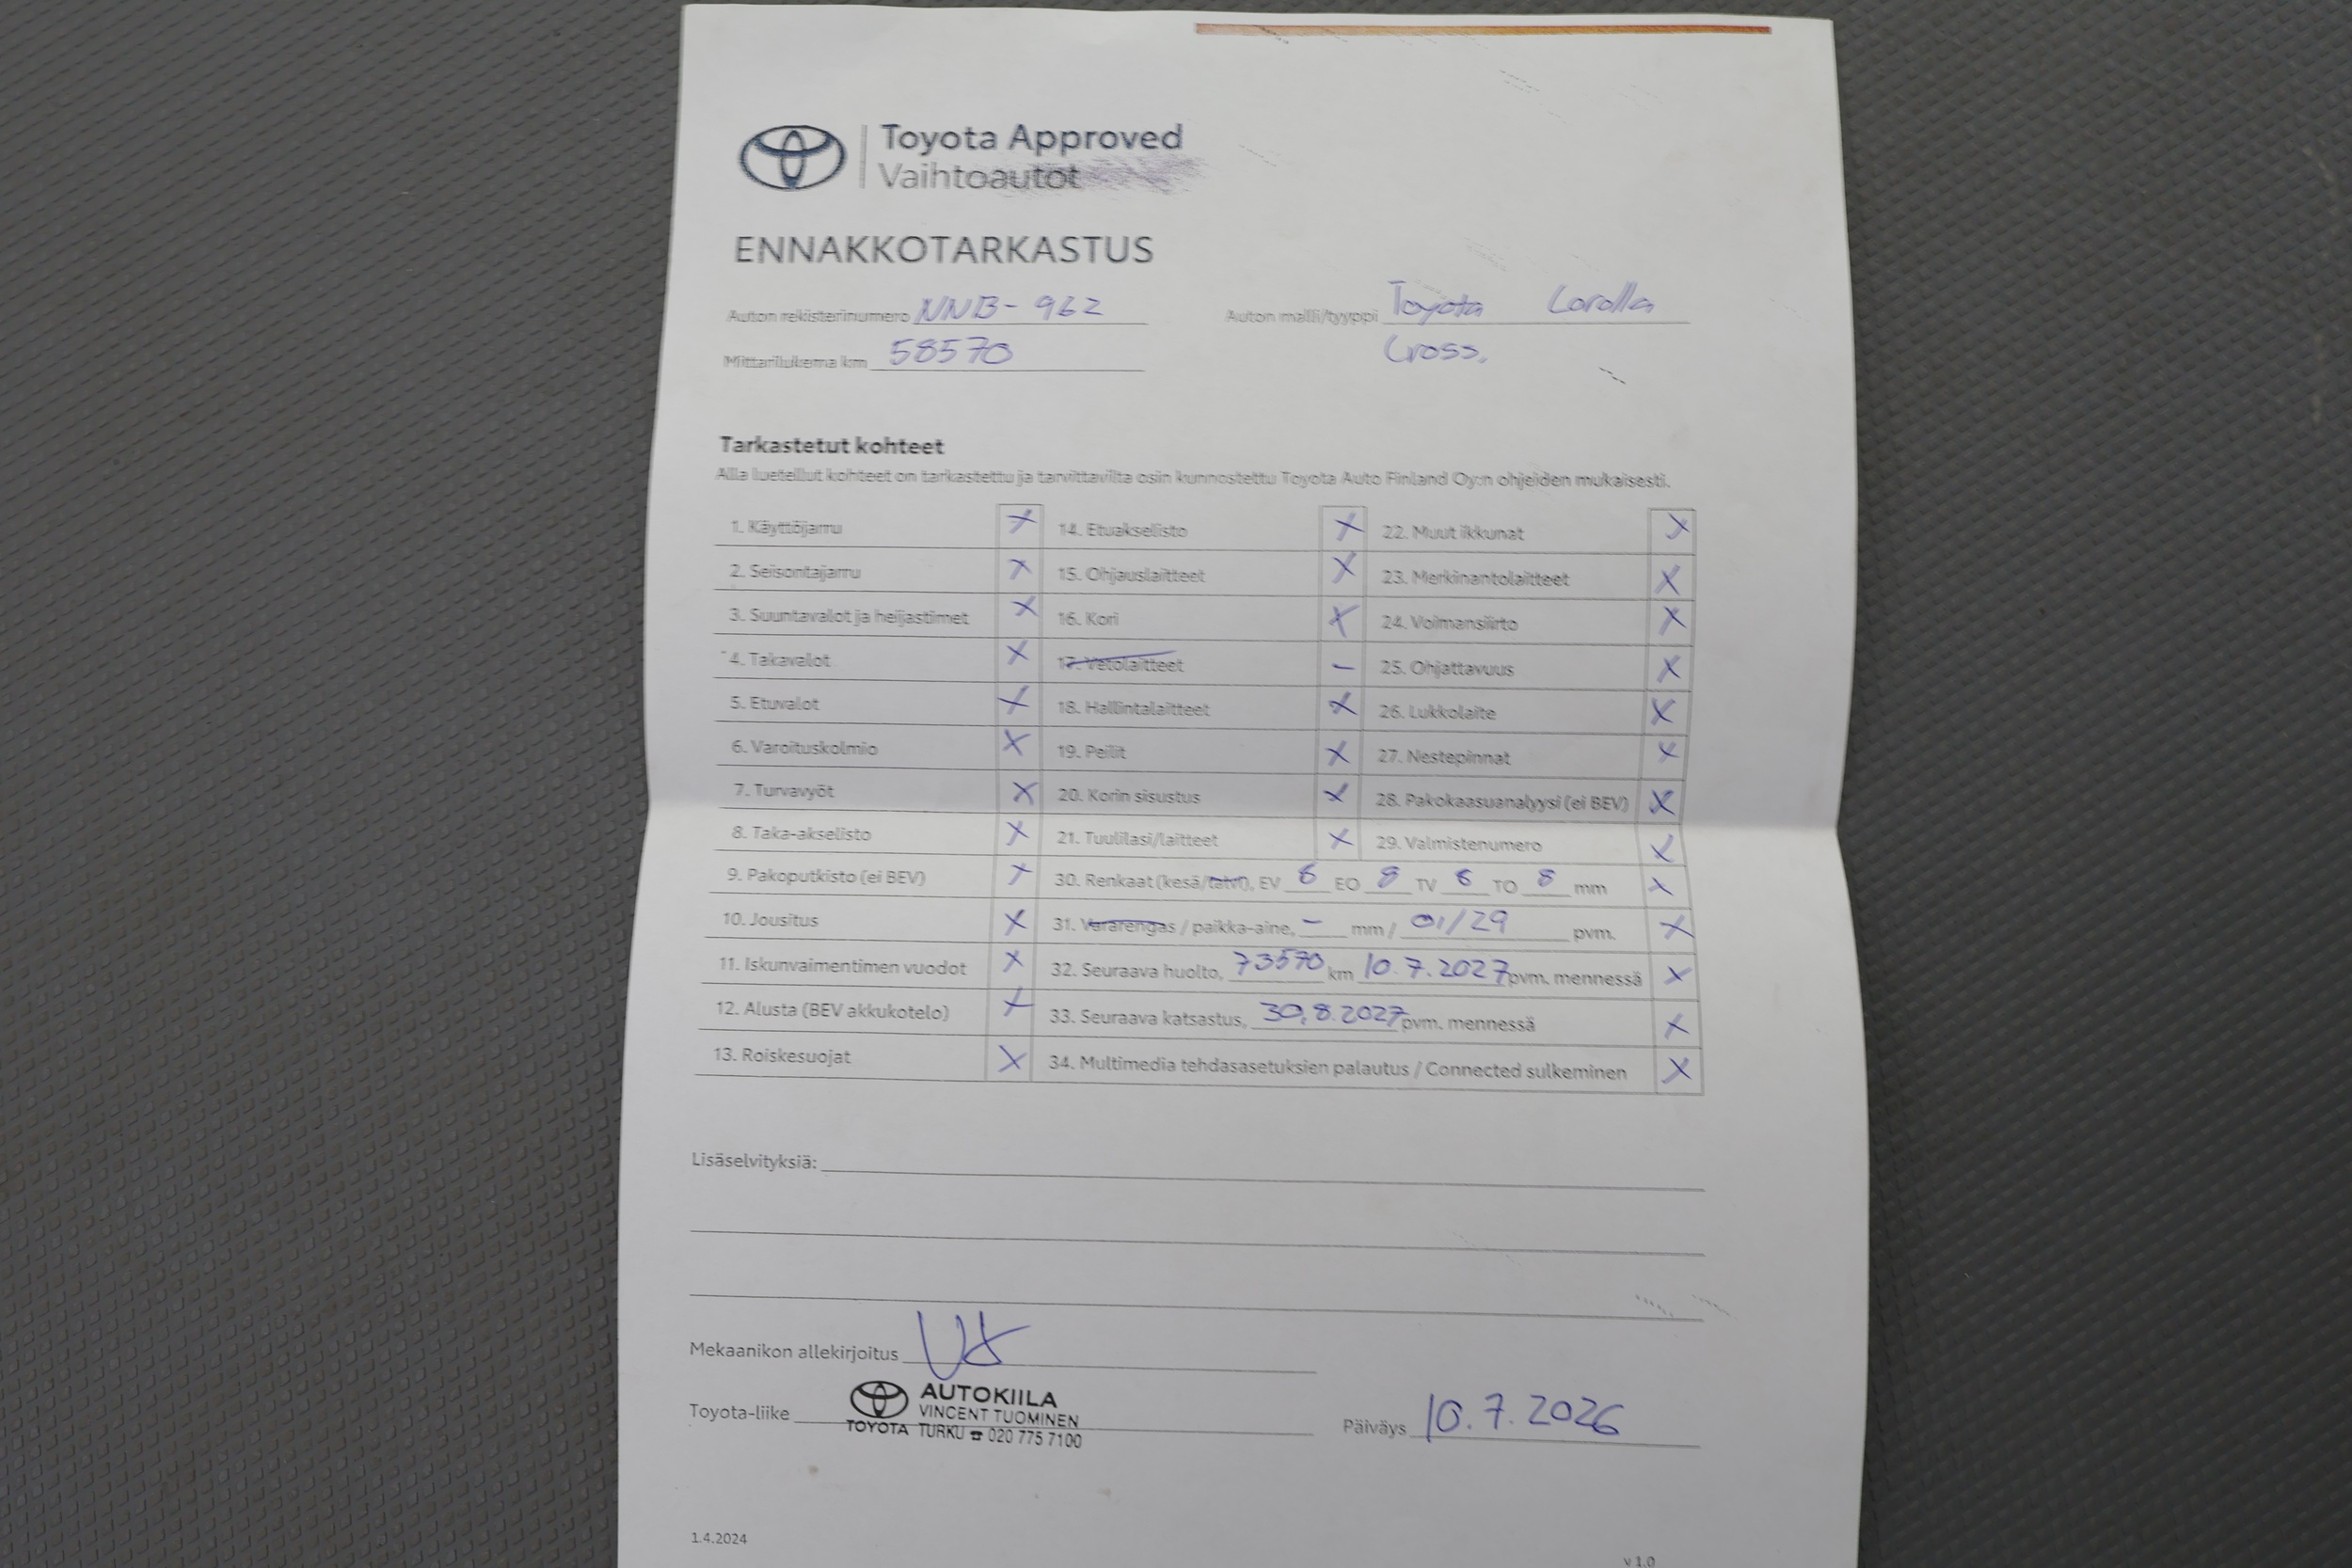 Toyota Approved
Vaihtoautot
ENNAKKOTARKASTUS
Auton rekisterinumero NNB-962 Auton malli/tyyppi Toyota Corolla
Mittarilukema km 58570 Cross.
Tarkastetut kohteet
Alla luetellut kohteet on tarkastettu ja tarvittavilta osin kunnostettu Toyota Auto Finland Oy:n ohjeiden mukaisesti.
1. Käyttöjarru X 14. Etuakselisto X 22. Muut ikkunat X
2. Seisontajarru X 15. Ohjauslaitteet X 23. Merkinantolaitteet X
3. Suuntavalot ja heijastimet X 16. Kori X 24. Voimansiirto X
4. Takavalot X 17. Vetolaitteet – 25. Ohjattavuus X
5. Etuvalot X 18. Hallintalaitteet X 26. Lukkolaite X
6. Varoituskolmio X 19. Peilit X 27. Nestepinnat X
7. Turvavyöt X 20. Korin sisustus X 28. Pakokaasuanalyysi (ei BEV) X
8. Taka-akselisto X 21. Tuulilasi/laitteet X 29. Valmistenumero X
9. Pakoputkisto (ei BEV) X 30. Renkaat (kesä/talvi), EV 8 EO 8 TV 8 TO 8 mm X
10. Jousitus X 31. Vararengas / paikka-aine, – mm / 01/29 pvm. X
11. Iskunvaimentimen vuodot X 32. Seuraava huolto, 73570 km 10.7.2027 pvm. mennessä X
12. Alusta (BEV akkukotelo) X 33. Seuraava katsastus, 30.8.2027 pvm. mennessä X
13. Roiskesuojat X 34. Multimedia tehdasasetuksien palautus / Connected sulkeminen X
Lisäselvityksiä:
Mekaanikon allekirjoitus
Toyota-liike AUTOKIILA
VINCENT TUOMINEN
TOYOTA TURKU ☎ 020 775 7100
Päiväys 10.7.2026
1.4.2024
v 1.0